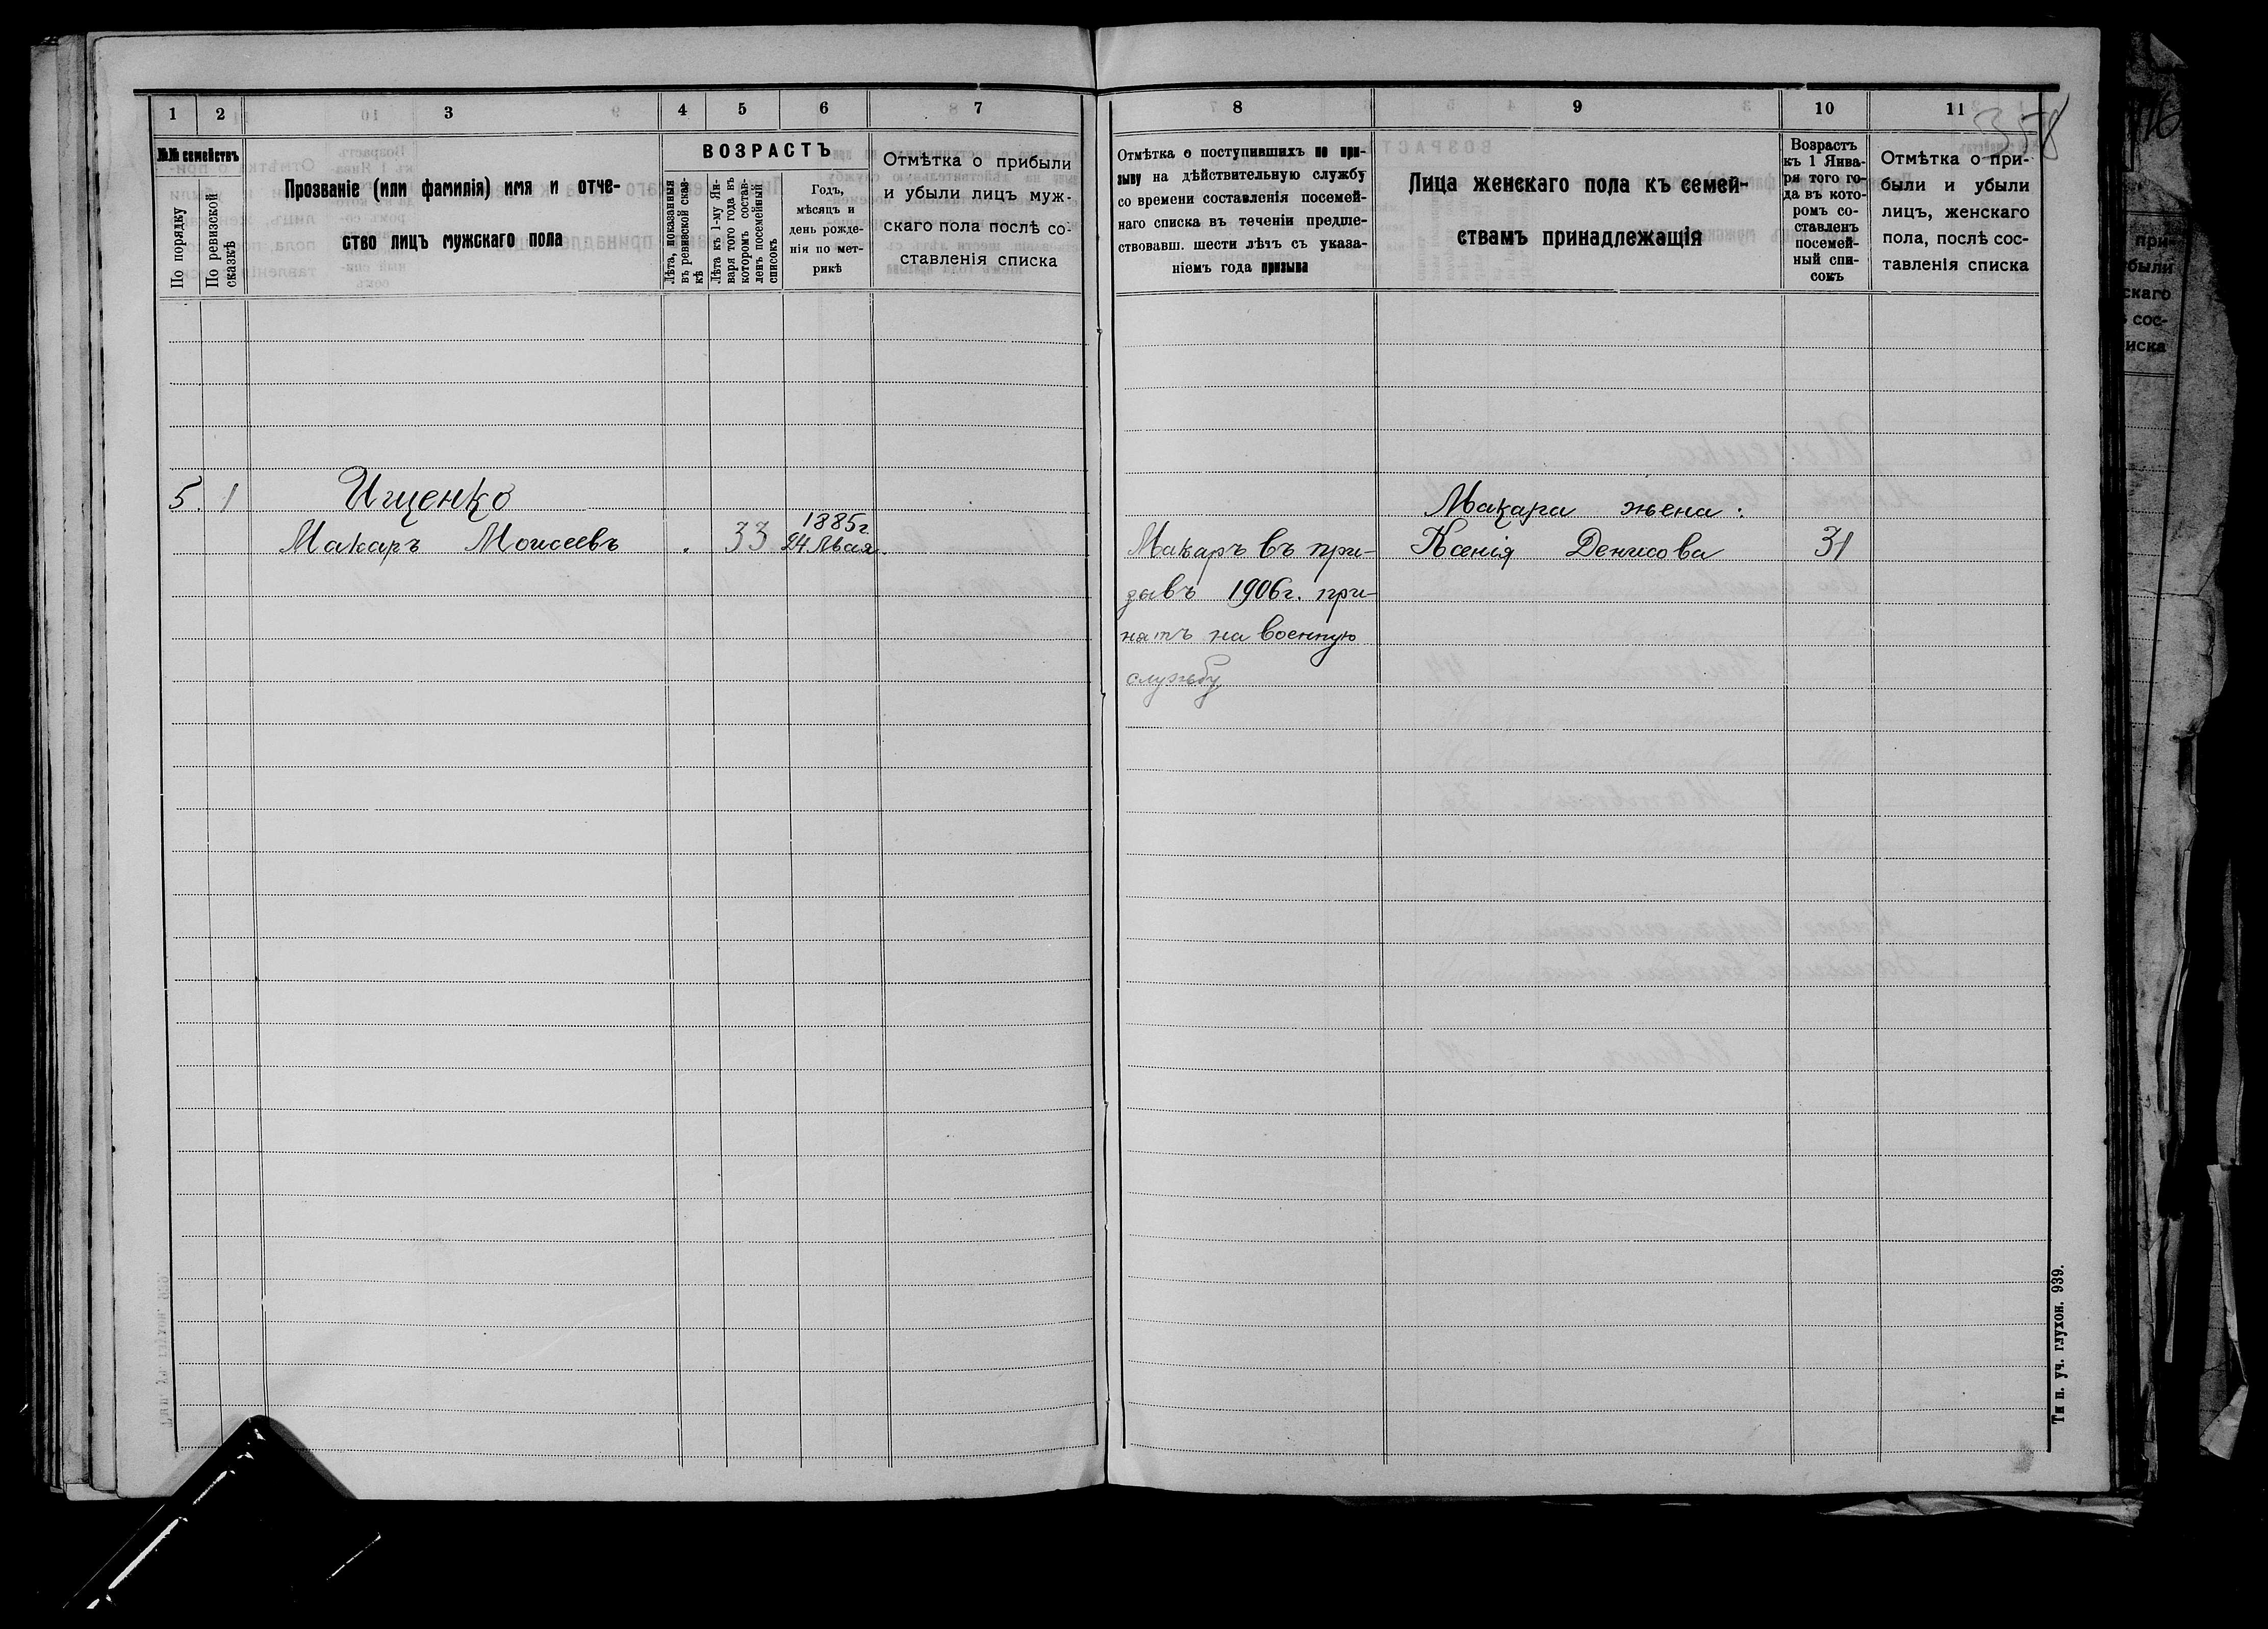 1 2 3 4 5 6 7
№№ семействъ
По порядку
По ревизской сказкѣ
Прозваніе (или фамилія) имя и отче-
ство лицъ мужскаго пола
ВОЗРАСТЪ
Лѣта, показанныя
въ ревизской сказ-
кѣ
Лѣта къ 1-му Ян-
варя того года въ
которомъ состав-
ленъ посемейный
списокъ
Годъ,
мѣсяцъ и
день рожде-
нія по мет-
рикѣ
Отмѣтка о прибыли
и убыли лицъ муж-
скаго пола послѣ со-
ставленія списка
5. 1 Ищенко
Макаръ Моисеевъ . 33 1885г.
24 Мая.
8 9 10 11
358
Отмѣтка о поступившихъ по при-
зыву на дѣйствительную службу
со времени составленія посемей-
наго списка въ теченіи предше-
ствовавш. шести лѣтъ съ указа-
ніемъ года призыва
Лица женскаго пола къ семей-
ствамъ принадлежащія
Возрастъ
къ 1 Янва-
ря того го-
да въ кото-
ромъ со-
ставленъ
посемей-
ный спи-
сокъ
Отмѣтка о при-
были и убыли
лицъ, женскаго
пола, послѣ сос-
тавленія списка
Макара жена:
Макаръ въ при- Ксенія Денисова 31
зывъ 1906г. при-
нятъ на военную
службу
Тип. уч. глухон. 939.
при-
были
скаго
сос-
иска